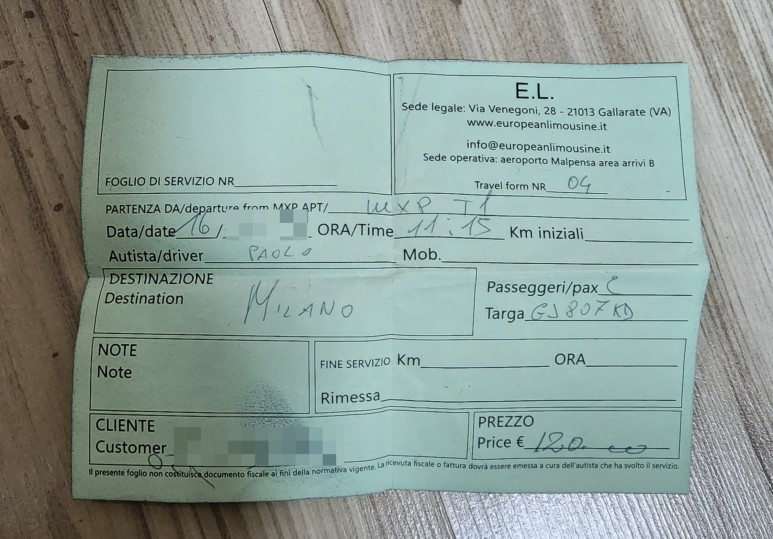 E.L.
Sede legale: Via Venegoni, 28 - 21013 Gallarate (VA)
www.europeanlimousine.it
info@europeanlimousine.it
Sede operativa: aeroporto Malpensa area arrivi B
FOGLIO DI SERVIZIO NR
Travel form NR 04
PARTENZA DA/departure from MXP APT/ MXP T1
Data/date 16 / ORA/Time 11:15 Km iniziali
Autista/driver PAOLO Mob.
DESTINAZIONE
Destination MILANO
Passeggeri/pax
Targa GJ807KD
NOTE
Note
FINE SERVIZIO Km ORA
Rimessa
CLIENTE
Customer
PREZZO
Price € 120.00
Il presente foglio non costituisce documento fiscale ai fini della normativa vigente. La ricevuta fiscale o fattura dovrà essere emessa a cura dell'autista che ha svolto il servizio.